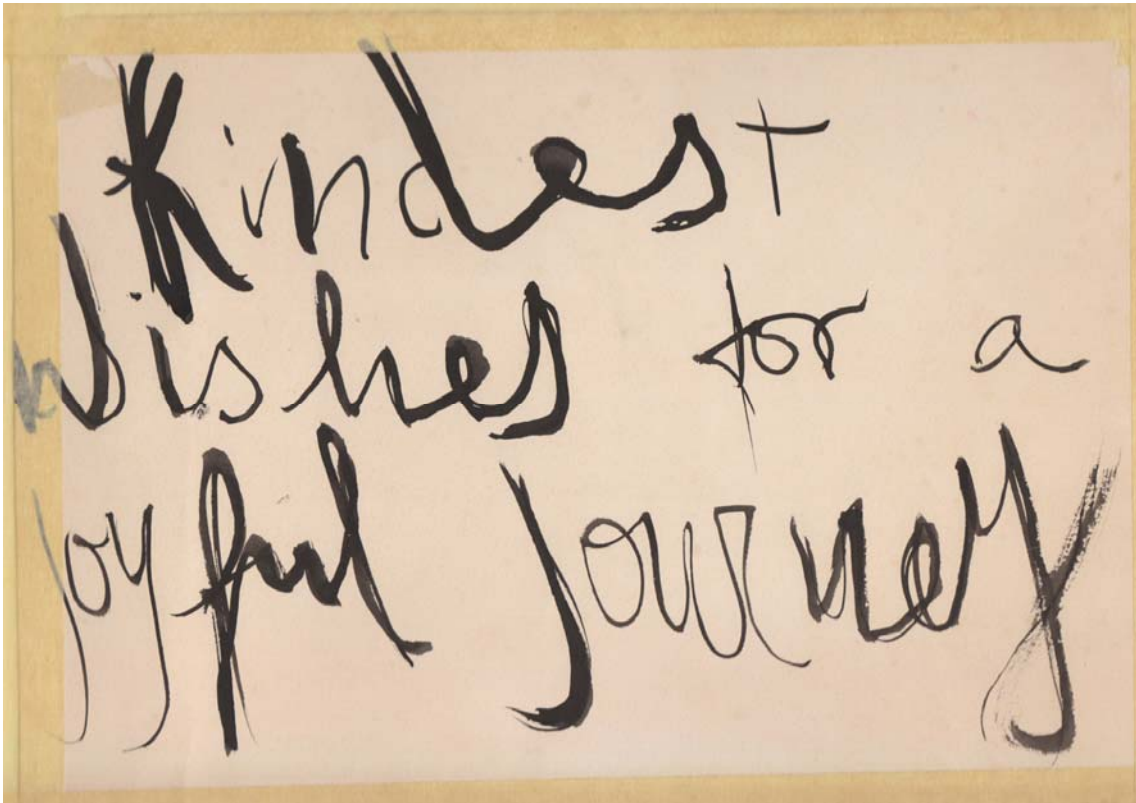 Kindest
Wishes for a
joyful Journey